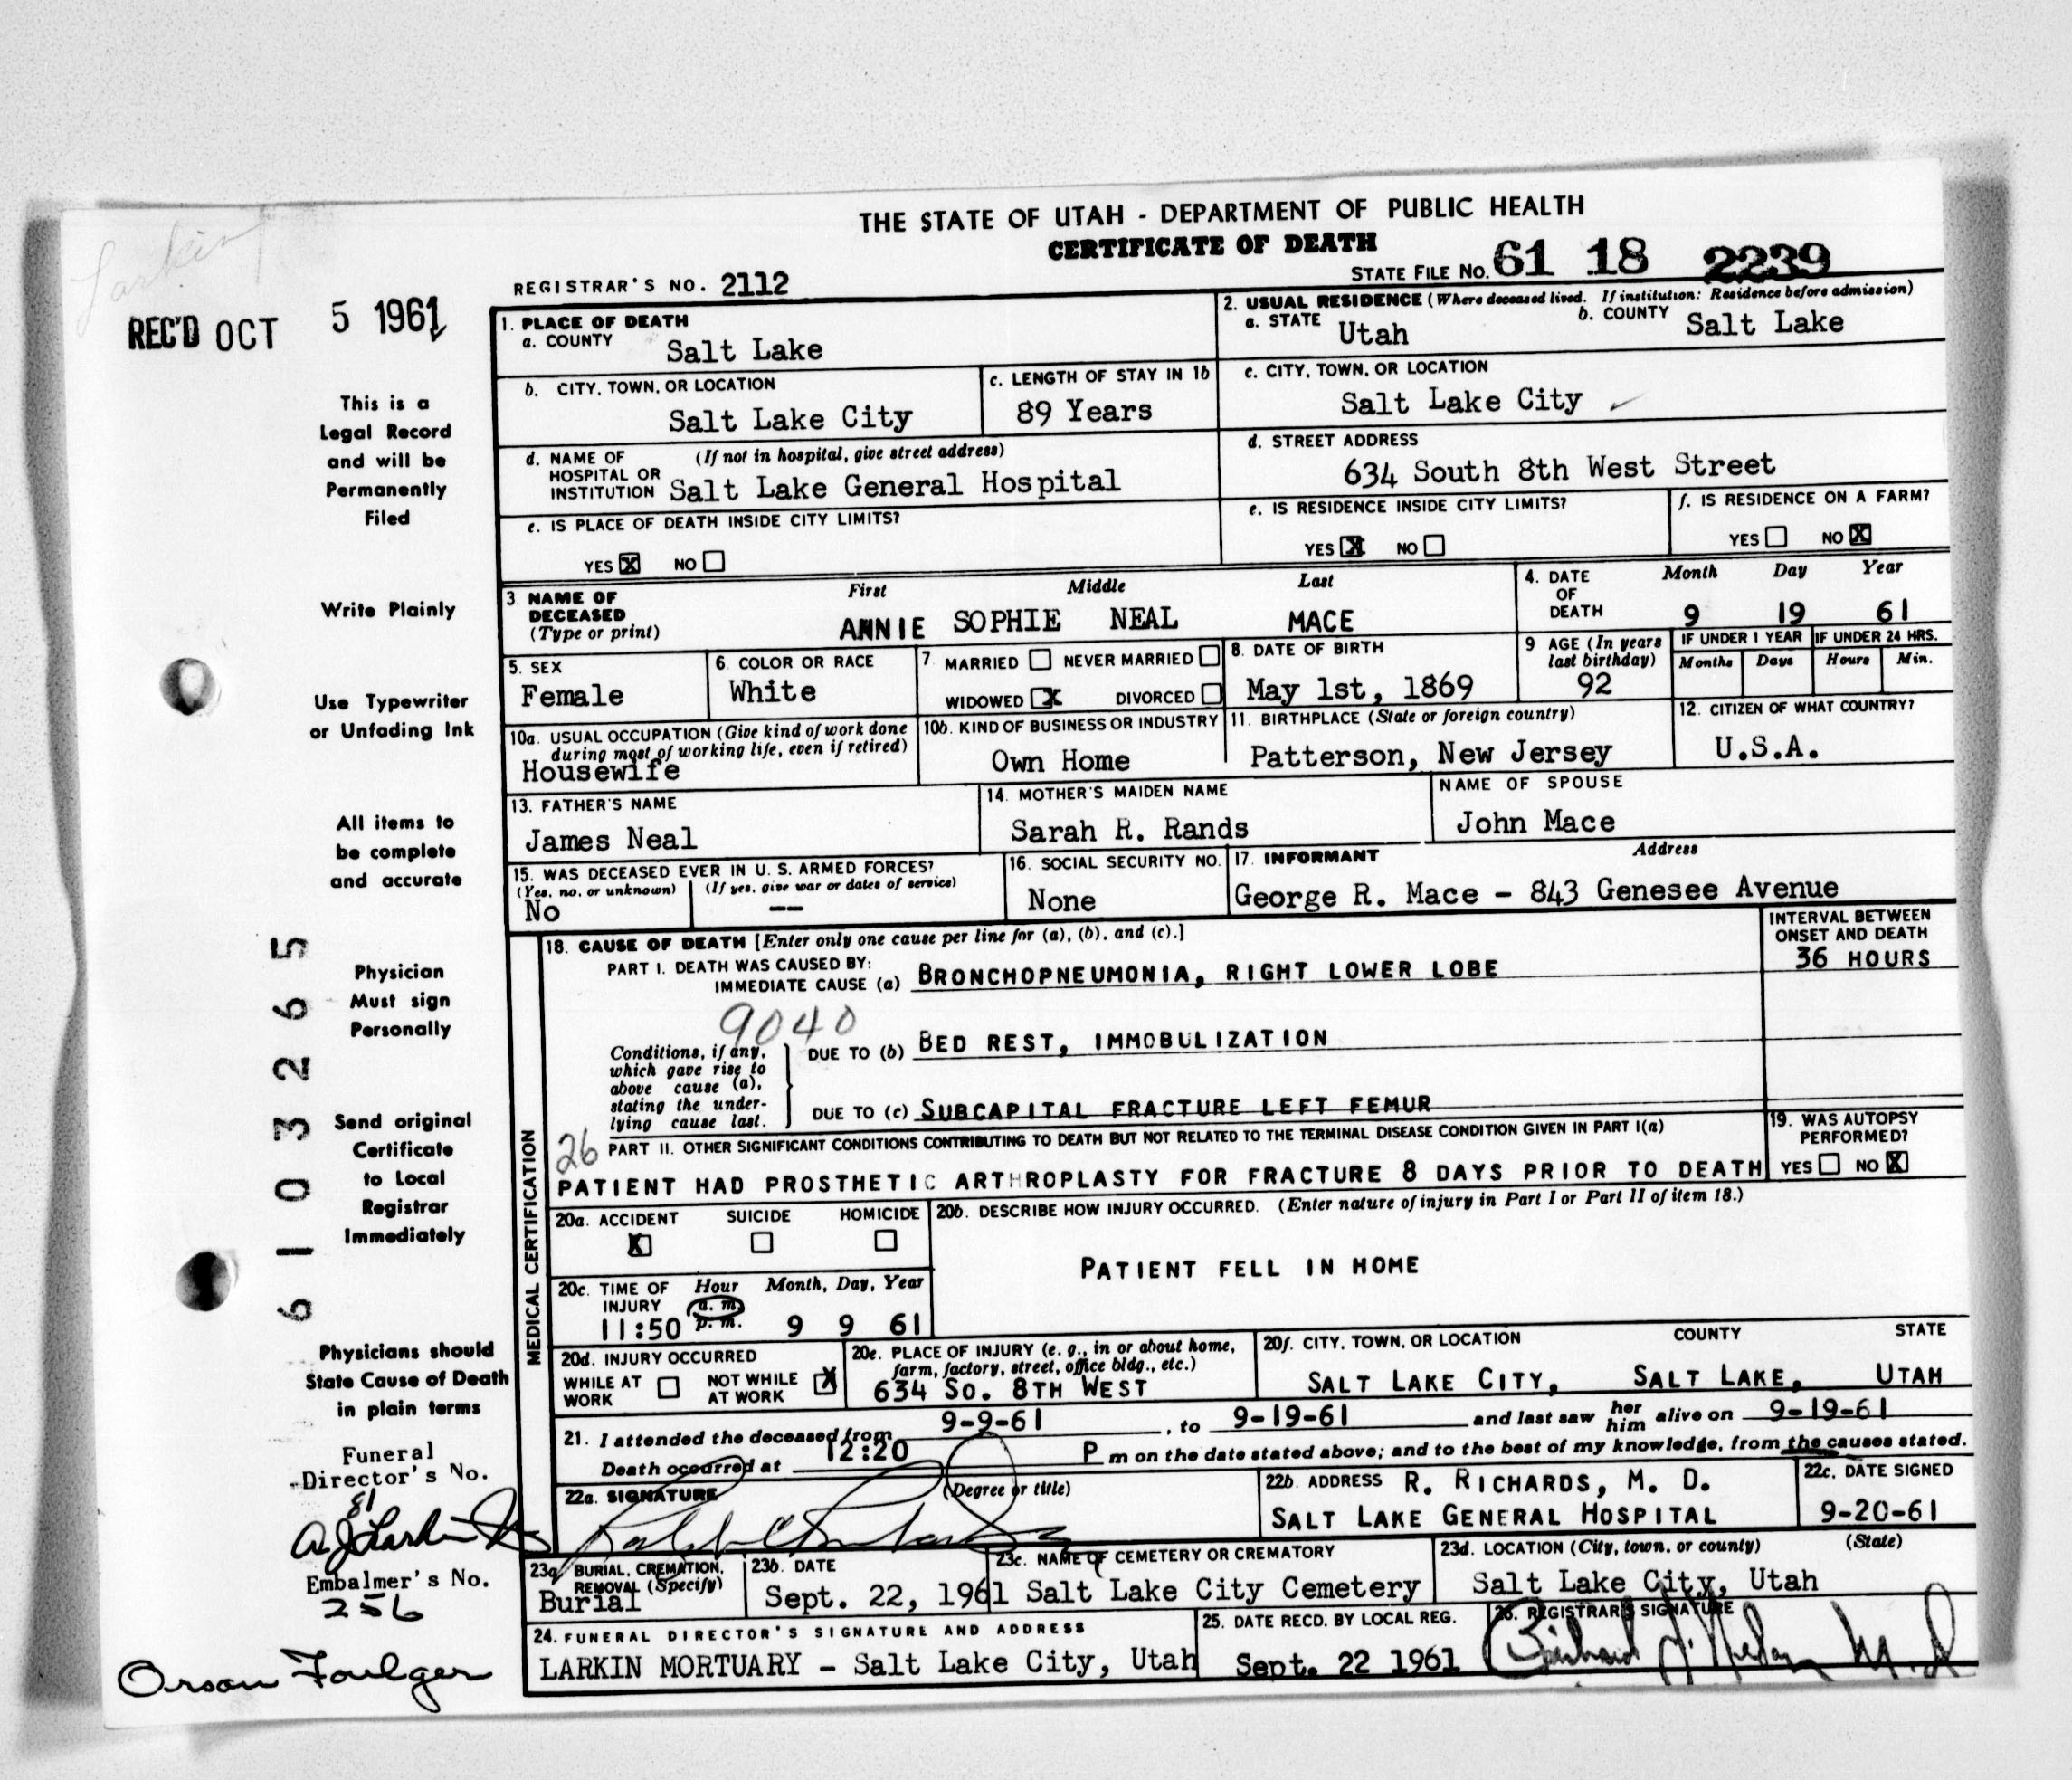 Larkin
THE STATE OF UTAH - DEPARTMENT OF PUBLIC HEALTH
CERTIFICATE OF DEATH
REGISTRAR'S NO. 2112
STATE FILE NO. 61 18 2239
REC'D OCT 5 1961
This is a
Legal Record
and will be
Permanently
Filed
Write Plainly
Use Typewriter
or Unfading Ink
All items to
be complete
and accurate
Physician
Must sign
Personally
Send original
Certificate
to Local
Registrar
Immediately
Physicians should
State Cause of Death
in plain terms
Funeral
Director's No.
81
Embalmer's No.
256
Orson Foulger
61032655
1. PLACE OF DEATH
a. COUNTY Salt Lake
b. CITY, TOWN, OR LOCATION Salt Lake City
c. LENGTH OF STAY IN 1b 89 Years
d. NAME OF HOSPITAL OR INSTITUTION (If not in hospital, give street address) Salt Lake General Hospital
e. IS PLACE OF DEATH INSIDE CITY LIMITS?
YES X NO
2. USUAL RESIDENCE (Where deceased lived. If institution: Residence before admission)
a. STATE Utah b. COUNTY Salt Lake
c. CITY, TOWN, OR LOCATION
Salt Lake City
d. STREET ADDRESS
634 South 8th West Street
e. IS RESIDENCE INSIDE CITY LIMITS?
YES X NO
f. IS RESIDENCE ON A FARM?
YES NO X
3. NAME OF DECEASED (Type or print) First Middle Last
ANNIE SOPHIE NEAL MACE
4. DATE OF DEATH Month Day Year
9 19 61
5. SEX
Female
6. COLOR OR RACE
White
7. MARRIED NEVER MARRIED
WIDOWED X DIVORCED
8. DATE OF BIRTH
May 1st, 1869
9 AGE (In years last birthday)
92
IF UNDER 1 YEAR IF UNDER 24 HRS.
Months Days Hours Min.
10a. USUAL OCCUPATION (Give kind of work done during most of working life, even if retired)
Housewife
10b. KIND OF BUSINESS OR INDUSTRY
Own Home
11. BIRTHPLACE (State or foreign country)
Patterson, New Jersey
12. CITIZEN OF WHAT COUNTRY?
U.S.A.
13. FATHER'S NAME
James Neal
14. MOTHER'S MAIDEN NAME
Sarah R. Rands
NAME OF SPOUSE
John Mace
15. WAS DECEASED EVER IN U. S. ARMED FORCES?
(Yes, no, or unknown) (If yes, give war or dates of service)
No --
16. SOCIAL SECURITY NO.
None
17. INFORMANT Address
George R. Mace - 843 Genesee Avenue
MEDICAL CERTIFICATION
18. CAUSE OF DEATH [Enter only one cause per line for (a), (b), and (c).]
INTERVAL BETWEEN ONSET AND DEATH
PART I. DEATH WAS CAUSED BY:
IMMEDIATE CAUSE (a) BRONCHOPNEUMONIA, RIGHT LOWER LOBE
36 HOURS
9040
Conditions, if any, which gave rise to above cause (a), stating the underlying cause last.
DUE TO (b) BED REST, IMMOBULIZATION
DUE TO (c) SUBCAPITAL FRACTURE LEFT FEMUR
26
PART II. OTHER SIGNIFICANT CONDITIONS CONTRIBUTING TO DEATH BUT NOT RELATED TO THE TERMINAL DISEASE CONDITION GIVEN IN PART I(a)
PATIENT HAD PROSTHETIC ARTHROPLASTY FOR FRACTURE 8 DAYS PRIOR TO DEATH
19. WAS AUTOPSY PERFORMED?
YES NO X
20a. ACCIDENT SUICIDE HOMICIDE
X
20b. DESCRIBE HOW INJURY OCCURRED. (Enter nature of injury in Part I or Part II of item 18.)
PATIENT FELL IN HOME
20c. TIME OF INJURY Hour Month, Day, Year
a. m.
p. m.
11:50 9 9 61
20d. INJURY OCCURRED
WHILE AT WORK NOT WHILE AT WORK X
20e. PLACE OF INJURY (e. g., in or about home, farm, factory, street, office bldg., etc.)
634 SO. 8TH WEST
20f. CITY, TOWN, OR LOCATION COUNTY STATE
SALT LAKE CITY, SALT LAKE, UTAH
21. I attended the deceased from 9-9-61, to 9-19-61 and last saw her him alive on 9-19-61
Death occurred at 12:20 P m on the date stated above; and to the best of my knowledge, from the causes stated.
22a. SIGNATURE (Degree or title)
22b. ADDRESS R. RICHARDS, M. D.
SALT LAKE GENERAL HOSPITAL
22c. DATE SIGNED
9-20-61
23a. BURIAL, CREMATION, REMOVAL (Specify)
Burial
23b. DATE
Sept. 22, 1961
23c. NAME OF CEMETERY OR CREMATORY
Salt Lake City Cemetery
23d. LOCATION (City, town, or county) (State)
Salt Lake City, Utah
24. FUNERAL DIRECTOR'S SIGNATURE AND ADDRESS
LARKIN MORTUARY - Salt Lake City, Utah
25. DATE RECD. BY LOCAL REG.
Sept. 22 1961
26. REGISTRAR'S SIGNATURE